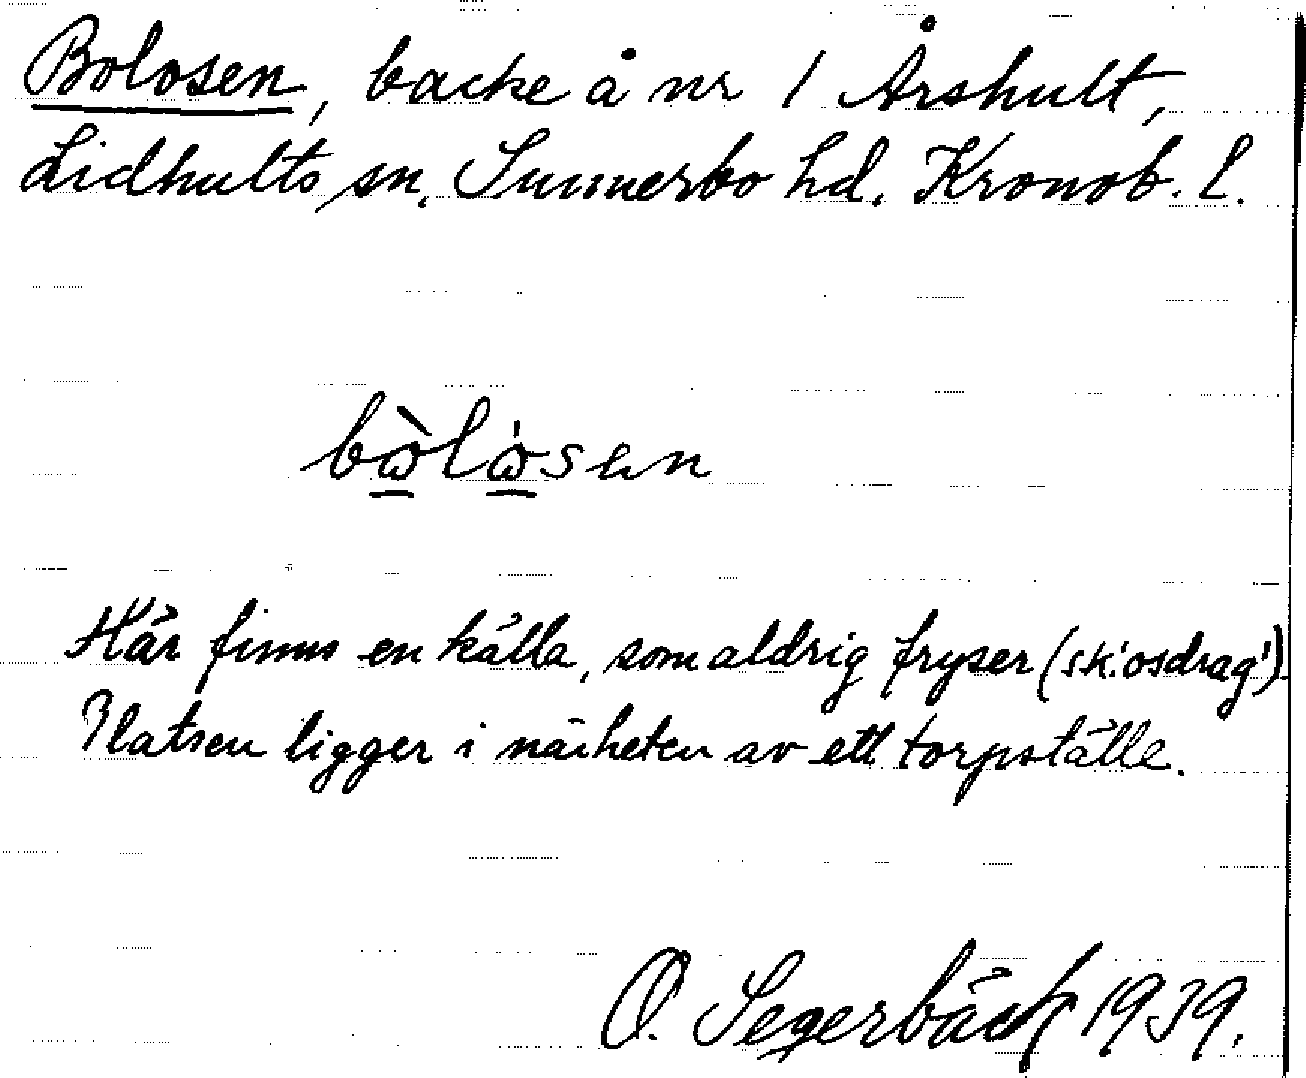 Bolosen, backe å nr 1 Årshult,
Lidhults sn. Sunnerbo hd. Kronob. l.
bὼlώsen
Här finns en källa, som aldrig fryser (sk. osdrag).
Platsen ligger i närheten av ett torpställe.
O. Segerbäck 1939.